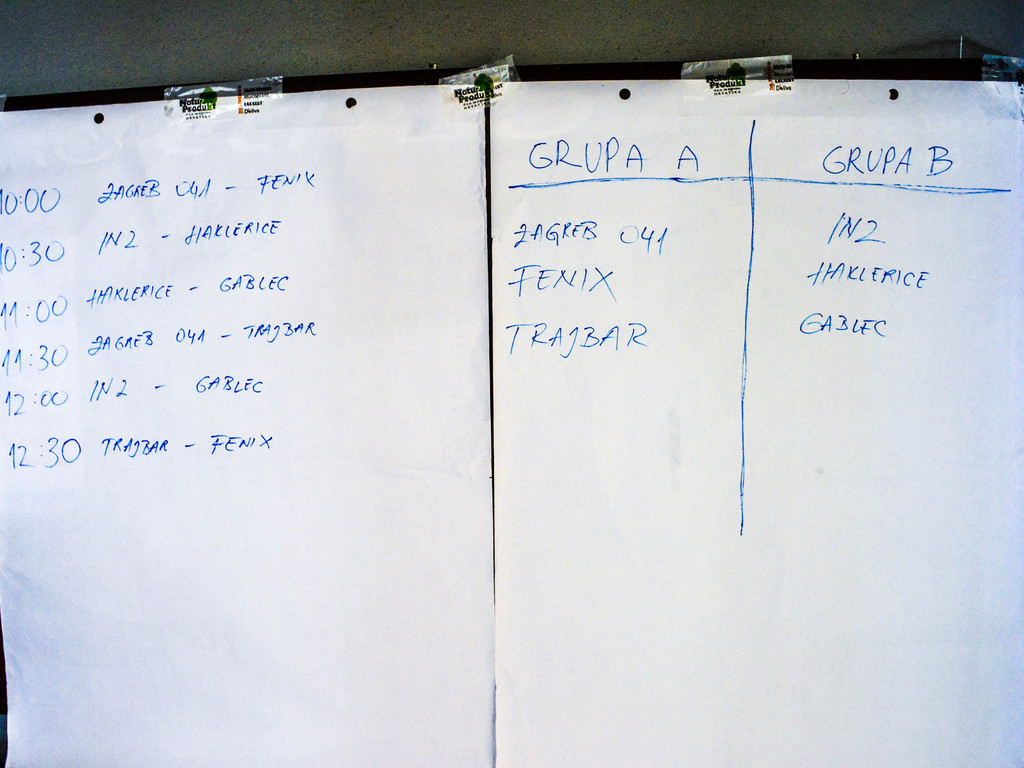 Natur
Produkt
HRVATSKA
Natur
Produkt
HRVATSKA
Natur
Produkt
HRVATSKA
10:00 ZAGREB 041 - FENIX
10:30 IN2 - HAKLERICE
11:00 HAKLERICE - GABLEC
11:30 ZAGREB 041 - TRAJBAR
12:00 IN2 - GABLEC
12:30 TRAJBAR - FENIX
GRUPA A GRUPA B
ZAGREB 041 IN2
FENIX HAKLERICE
TRAJBAR GABLEC